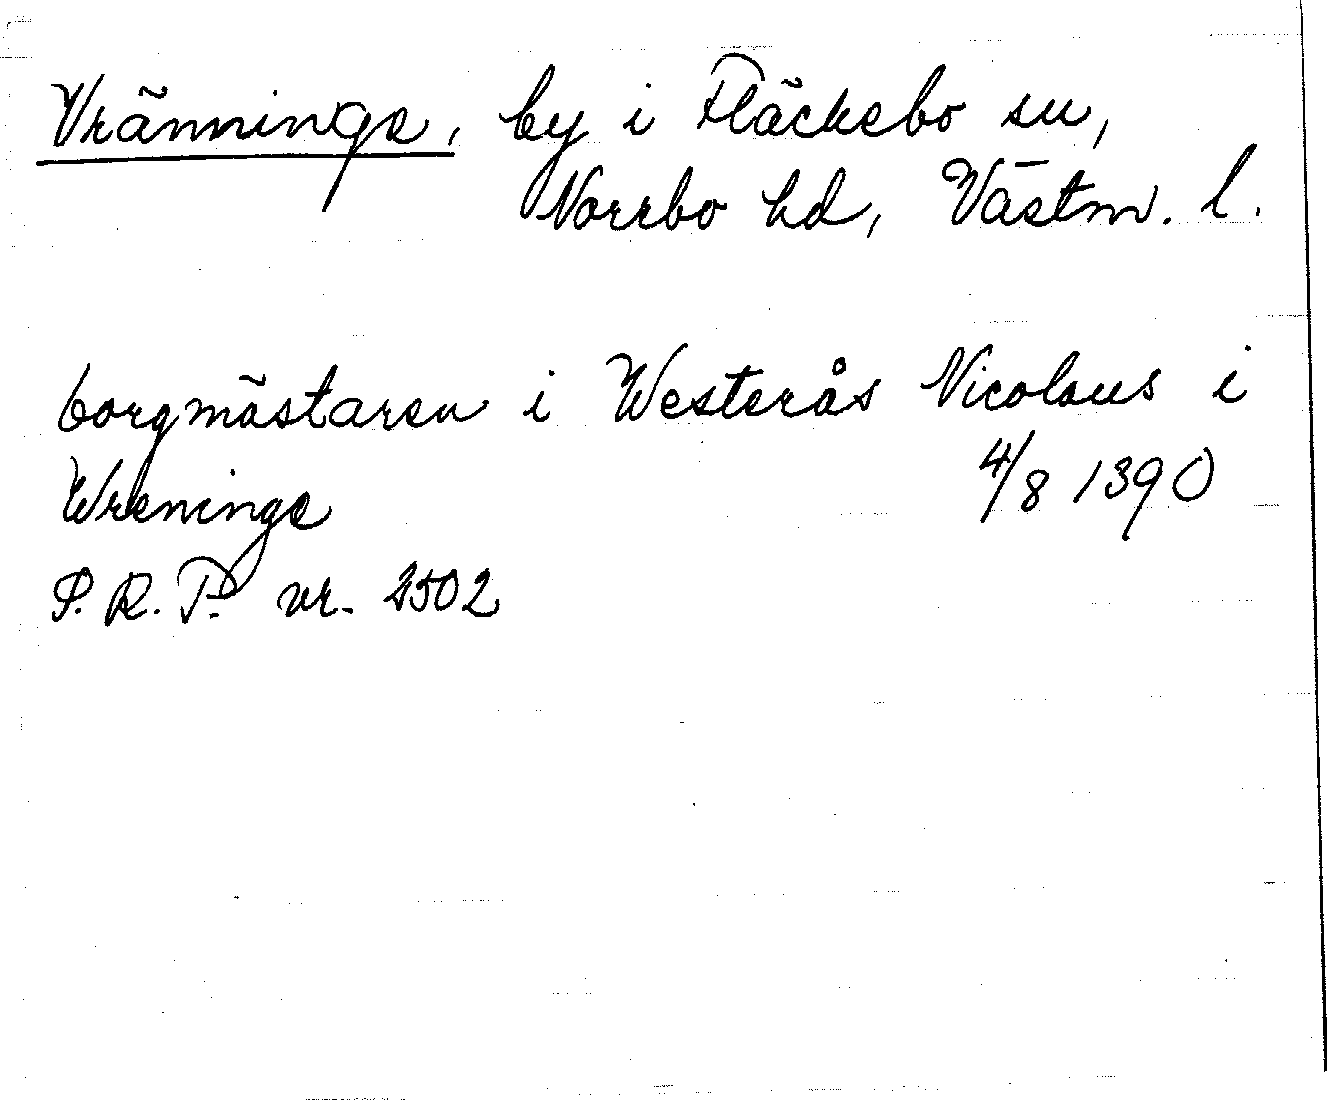 Vränninge, by i Fläckebo sn,
Norrbo hd, Västm. l.
borgmästaren i Westerås Nicolaus i
Wreninge 4/8 1390
S. R. P. nr. 2502